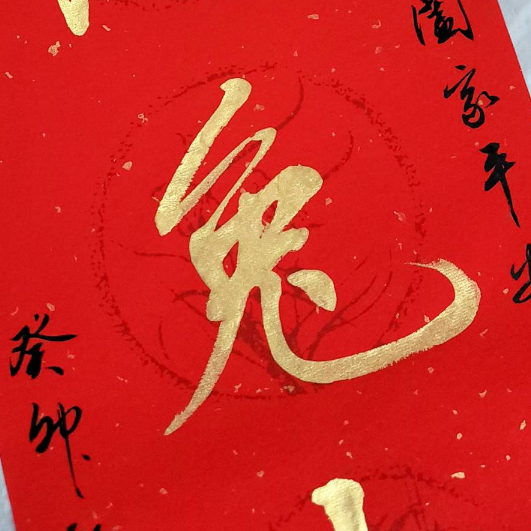 闔家平安
兔
癸卯